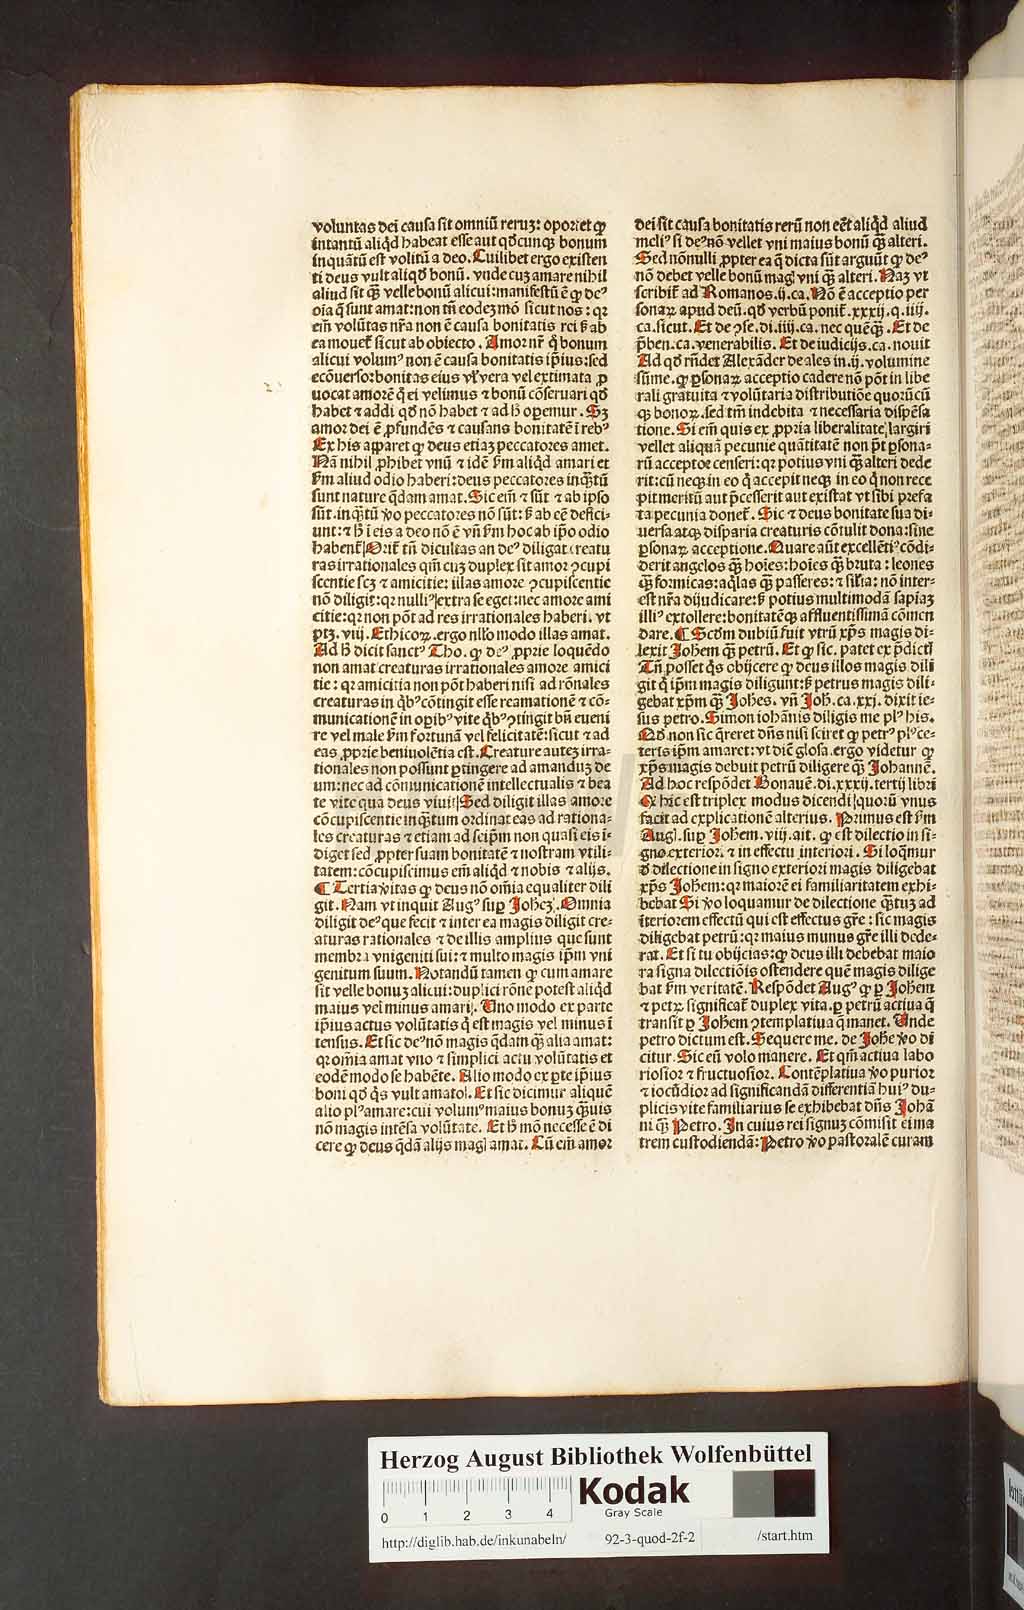 voluntas dei causa sit omniũ rerũ: oportet ꝙ
intantũ aliqđ habeat esse aut qđcunqꝫ bonum
inquãtũ est volitũ a deo. Cuilibet ergo existen
ti deus vult aliqđ bonũ. vnde cuꝫ amare nihil
aliud sit qᷓꝫ velle bonũ alicui: manifestũ ẽ ꝙ deꝰ
oĩa q̃ sunt amat: non tñ eodeꝫ mõ sicut nos: qꝛ
em̃ volũtas nr̃a non ẽ causa bonitatis rei sꝫ ab
ea mouet᷑ sicut ab obiecto. Amor nr̃ q̃ bonum
alicui volumꝰ non ẽ causa bonitatis ip̃ius: sed
ecõuerso: bonitas eius vl̃ vera vel extimata ꝓ
uocat amorẽ q̃ ei velimus ⁊ bonũ cõseruari qđ
habet ⁊ addi qđ nõ habet ⁊ ad hͦ oꝑemur. Sꝫ
amor dei ẽ ꝓfundẽs ⁊ causans bonitatẽ ĩ rebꝰ
Ex his apparet ꝙ deus etiaꝫ peccatores amet.
Nã nihil ꝓhibet vnũ ⁊ idẽ ẜm aliqđ amari et
ẜm aliud odio haberi: deus peccatores inqᷓtũ
sunt nature q̃dam amat. Sic em̃ ⁊ sũt ⁊ ab ipso
sũt. inqᷓtũ ꝟo peccatores nõ sũt: sꝫ ab eẽ defici⸗
unt: ⁊ hͦ ĩ eis a deo nõ ẽ vñ ẜm hoc ab ip̃o odio
habent᷑ Orit᷑ tñ dicultas an deꝰ diligat creatu
ras irrationales qm̃ cuꝫ duplex sit amor ↄcupi
scentie scꝫ ⁊ amicitie: illas amore ↄcupiscentie
nõ diligit: qꝛ nulliꝰ extra se eget: nec amore ami
citie: qꝛ non põt ad res irrationales haberi. vt
ptꝫ. viij. Ethicoꝝ. ergo nllõ modo illas amat.
Ad hͦ dicit sanctꝰ Tho. ꝙ deꝰ ꝓprie loquẽdo
non amat creaturas irrationales amore amici
tie: qꝛ amicitia non põt haberi nisi ad rõnales
creaturas in qͥbꝰ cõtingit esse reamationẽ ⁊ cõ⸗
municationẽ in oꝑibꝰ vite qͥbꝰ ↄtingit bñ eueni
re vel male ẜm fortunã vel felicitatẽ: sicut ⁊ ad
eas ꝓprie beniuolẽtia est. Creature auteꝫ irra⸗
tionales non possunt ꝑtingere ad amanduꝫ de
um: nec ad cõmunicationẽ intellectualis ⁊ bea
te vite qua deus viuit Sed diligit illas amore
cõcupiscentie inqᷓtum ordinat eas ad rationa⸗
les creaturas ⁊ etiam ad seip̃m non quasi eis i⸗
diget sed ꝓpter suam bonitatẽ ⁊ nostram vtili⸗
tatem: cõcupiscimus em̃ aliqđ ⁊ nobis ⁊ alijs.
¶ Tertia ꝟitas ꝙ deus nõ om̃ia equaliter dili
git. Nam vt inquit Augꝰ suꝑ Joheꝫ. Omnia
diligit deꝰ que fecit ⁊ inter ea magis diligit cre⸗
aturas rationales ⁊ de illis amplius que sunt
membra vnigeniti sui: ⁊ multo magis ip̃m vni
genitum suum. Notandũ tamen ꝙ cum amare
sit velle bonuꝫ alicui: duplici rõne potest aliqđ
maius vel minus amari. Uno modo ex parte
ip̃ius actus volũtatis q̃ est magis vel minus ĩ
tensus. Et sic deꝰ nõ magis q̃dam qᷓꝫ alia amat:
qꝛ om̃ia amat vno ⁊ simplici actu volũtatis et
eodẽ modo se habẽte. Alio modo ex ꝑte ip̃ius
boni qđ q̃s vult amato. Et sic dicimur aliquẽ
alio plꝰ amare: cui volumꝰ maius bonuꝫ qᷓꝫuis
nõ magis intẽsa volũtate. Et hͦ mõ necesse ẽ di
cere ꝙ deus q̃dã alijs magꝭ amat. Cũ em̃ amor
dei sit causa bonitatis rerũ non eẽt aliqđ aliud
meliꝰ si deꝰ nõ vellet vni maius bonũ qᷓꝫ alteri.
Sed nõnulli ꝓpter ea q̃ dicta sũt arguũt ꝙ deꝰ
nõ debet velle bonũ magꝭ vni qᷓꝫ alteri. Naꝫ vt
scribit᷑ ad Romanos. ij. ca. Nõ ẽ acceptio per
sonaꝝ apud deũ. qđ verbũ ponit᷑. xxxij. q. iiij.
ca. sicut. Et de ↄse. di. iiij. ca. nec quẽqᷓꝫ. Et de
p̃ben. ca. venerabilis. Et de iudicijs. ca. nouit
Ad qđ rñdet Alexãder de ales in. ij. volumine
sũme. ꝙ ꝑsonaꝝ acceptio cadere nõ põt in libe
rali gratuita ⁊ volũtaria distributiõe quorũcũ
qꝫ bonoꝝ. sed tm̃ indebita ⁊ necessaria dispẽsa
tione. Si em̃ quis ex ꝓpria liberalitate largiri
vellet aliquã pecunie quãtitatẽ non p̃t ꝑsona⸗
rũ acceptor censeri: qꝛ potius vni qᷓꝫ alteri dede
rit: cũ neqꝫ in eo q̃ accepit neqꝫ in eo q̃ non rece
pit meritũ aut p̃cesserit aut existat vt sibi prefa
ta pecunia donet᷑. Sic ⁊ deus bonitate sua di⸗
uersa atqꝫ disparia creaturis cõtulit dona: sine
ꝑsonaꝝ acceptione. Quare aũt excellẽtiꝰ cõdi⸗
derit angelos qᷓꝫ hoĩes: hoĩes qᷓꝫ bruta: leones
qᷓꝫ formicas: aq̃las qᷓꝫ passeres: ⁊ sil̃ia: nõ inter⸗
est nr̃a dijudicare: sꝫ potius multimodã sapiãꝫ
illiꝰ extollere: bonitatẽqꝫ affluentissimã cõmen
dare. ¶ Scđm dubiũ fuit vtrũ xp̃s magis di⸗
lexit Johẽm qᷓꝫ petrũ. Et ꝙ sic. patet ex p̃dictꝭ
Tñ posset q̃s obijcere ꝙ deus illos magis dili
git q̃ ip̃m magis diligunt: sꝫ petrus magis dili⸗
gebat xp̃m qᷓꝫ Johẽs. vñ Joh̃. ca. xxj. dixit ie⸗
sus petro. Simon iohãnis diligis me plꝰ his.
Qđ non sic q̃reret dñs nisi sciret ꝙ petrꝰ plꝰ ce⸗
teris ip̃m amaret: vt diẽ glosa. ergo videtur ꝙ
xp̃s magis debuit petrũ diligere qᷓꝫ Johannẽ.
Ad hoc respõdet Bonauẽ. di. xxxij. tertij libri
ꝙ hic est triplex modus dicendi quorũ vnus
facit ad explicationẽ alterius. Primus est ẜm
Augꝰ. suꝑ Johẽm. viij. ait. ꝙ est dilectio in si⸗
gno exteriori ⁊ in effectu interiori. Si loqͥmur
đ dilectione in signo exteriori magis diligebat
xp̃s Johẽm: qꝛ maiorẽ ei familiaritatem exhi⸗
bebat Si ꝟo loquamur de dilectione qᷓꝫtuꝫ ad
ĩteriorem effectũ qui est effectus gr̃e: sic magis
diligebat petrũ: qꝛ maius munus gr̃e illi dede⸗
rat. Et si tu obijcias: ꝙ deus illi debebat maio
ra signa dilectiõis ostendere quẽ magis dilige
bat ẜm veritatẽ. Respõdet Augꝰ ꝙ ꝑ Johẽm
⁊ petꝝ significat᷑ duplex vita. ꝑ petrũ actiua q̃
transit ꝑ Johẽm ↄtemplatiua q̃ manet. Unde
petro dictum est. Sequere me. de Johẽ ꝟo di
citur. Sic eũ volo manere. Et qm̃ actiua labo
riosior ⁊ fructuosior. Contẽplatiua ꝟo purior
⁊ iocũdior ad significandã differentiã huiꝰ du⸗
plicis vite familiarius se exhibebat dñs Johã
ni qᷓꝫ Petro. In cuius rei signuꝫ cõmisit ei ma
trem custodiendã: Petro ꝟo pastoralẽ curam
Herzog August Bibliothek Wolfenbüttel
0 1 2 3 4
Kodak
Gray Scale
http://diglib.hab.de/inkunabeln/ 92-3-quod-2f-2 /start.htm